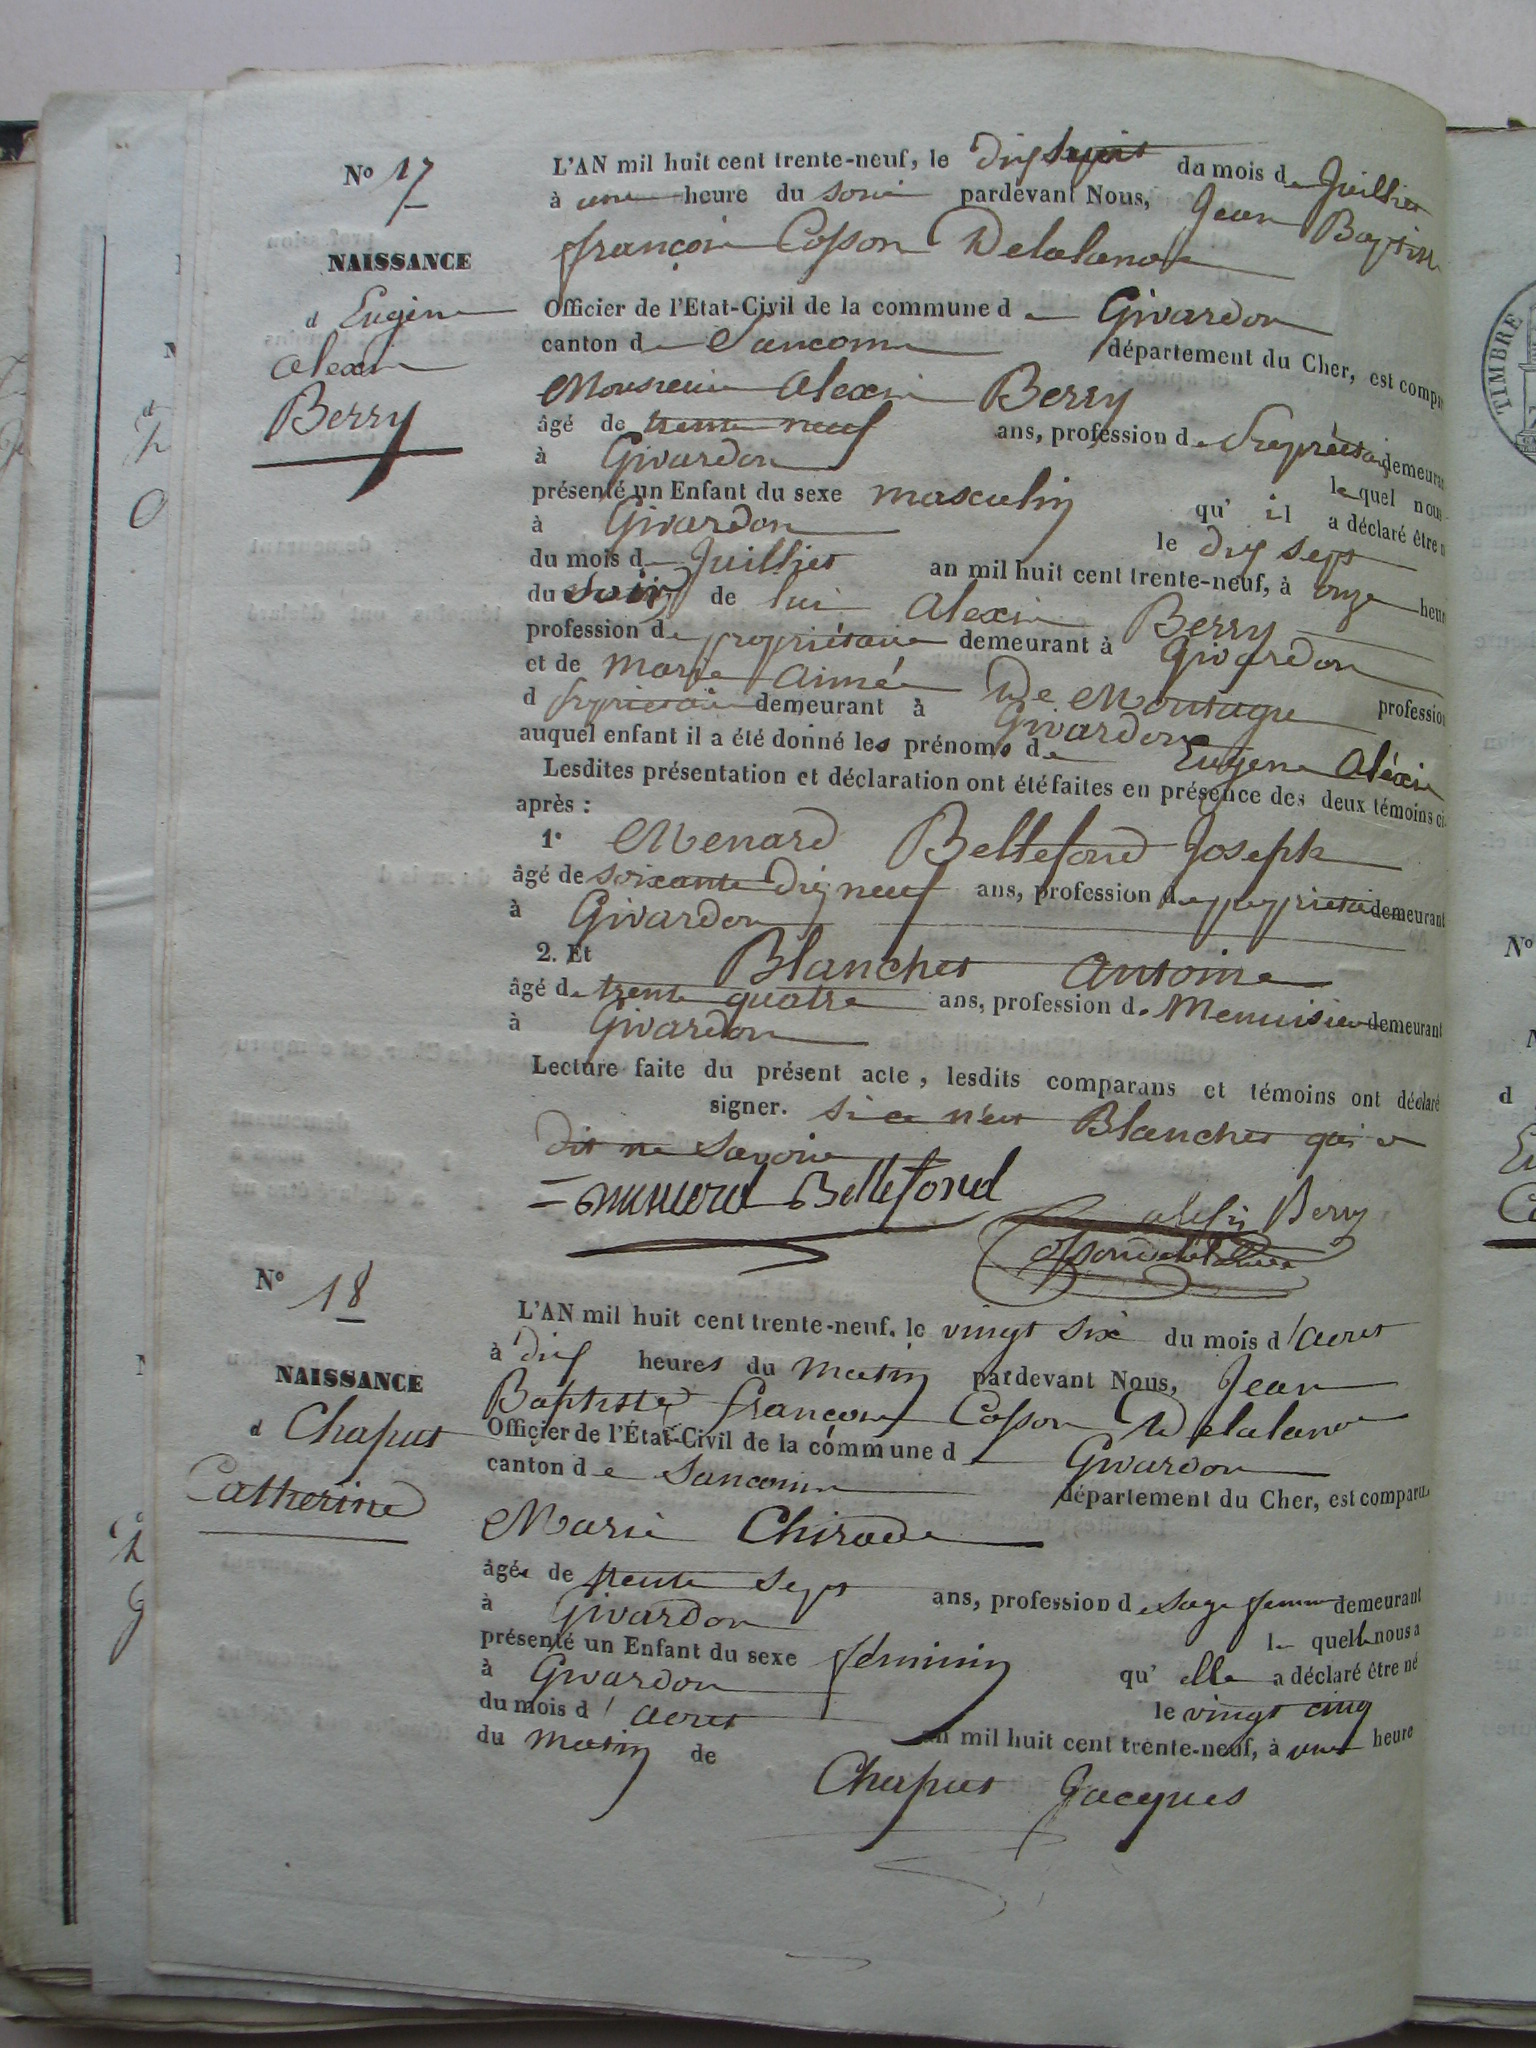 No 17
NAISSANCE
d Eugène
Alexis
Berry
L'AN mil huit cent trente-neuf, le dix sept du mois de Juilliet
à une heure du soir pardevant Nous, Jean Baptiste
françois Cosson Delalande
Officier de l'Etat-Civil de la commune de Givardon
canton de Sancoins département du Cher, est compar
Monsieur Alexis Berry
âgé de trente neuf ans, profession de Propriétaire demeurant
à Givardon lequel nous
présenté un Enfant du sexe masculin qu' il a déclaré être n
à Givardon le dix sept
du mois de Juilliet an mil huit cent trente-neuf, à onze heur
du soir de lui Alexis Berry
profession de propriétaire demeurant à Givardon
et de Marie Aimée De Montagu profession
d propriétaire demeurant à Givardon
auquel enfant il a été donné les prénoms de Eugène Aléxis
Lesdites présentation et déclaration ont été faites en présence des deux témoins ci-
après :
1° Menard Bellefond Joseph
âgé de soixante dix neuf ans, profession de propriétaire demeurant
à Givardon
2. Et Blanchet Antoine
âgé de trente quatre ans, profession de Menuisier demeurant
à Givardon
Lecture faite du présent acte, lesdits comparans et témoins ont déclaré
signer. si ce n'est Blanchet qui a
dit ne savoir
Menard Bellefond
alexis Berry
Cosson delalande
No 18
NAISSANCE
d Chaput
Catherine
L'AN mil huit cent trente-neuf, le vingt six du mois d'aout
à dix heures du matin pardevant Nous, Jean
Baptiste françois Cosson Delalande
Officier de l'État-Civil de la commune de Givardon
canton de Sancoins département du Cher, est comparu
Marie Chirade
âgée de trente sept ans, profession de sage femme demeurant
à Givardon lequelle nous a
présenté un Enfant du sexe féminin qu' elle a déclaré être né
à Givardon le vingt cinq
du mois d'aout an mil huit cent trente-neuf, à une heure
du matin de Chaput Jacques
TIMBRE
No